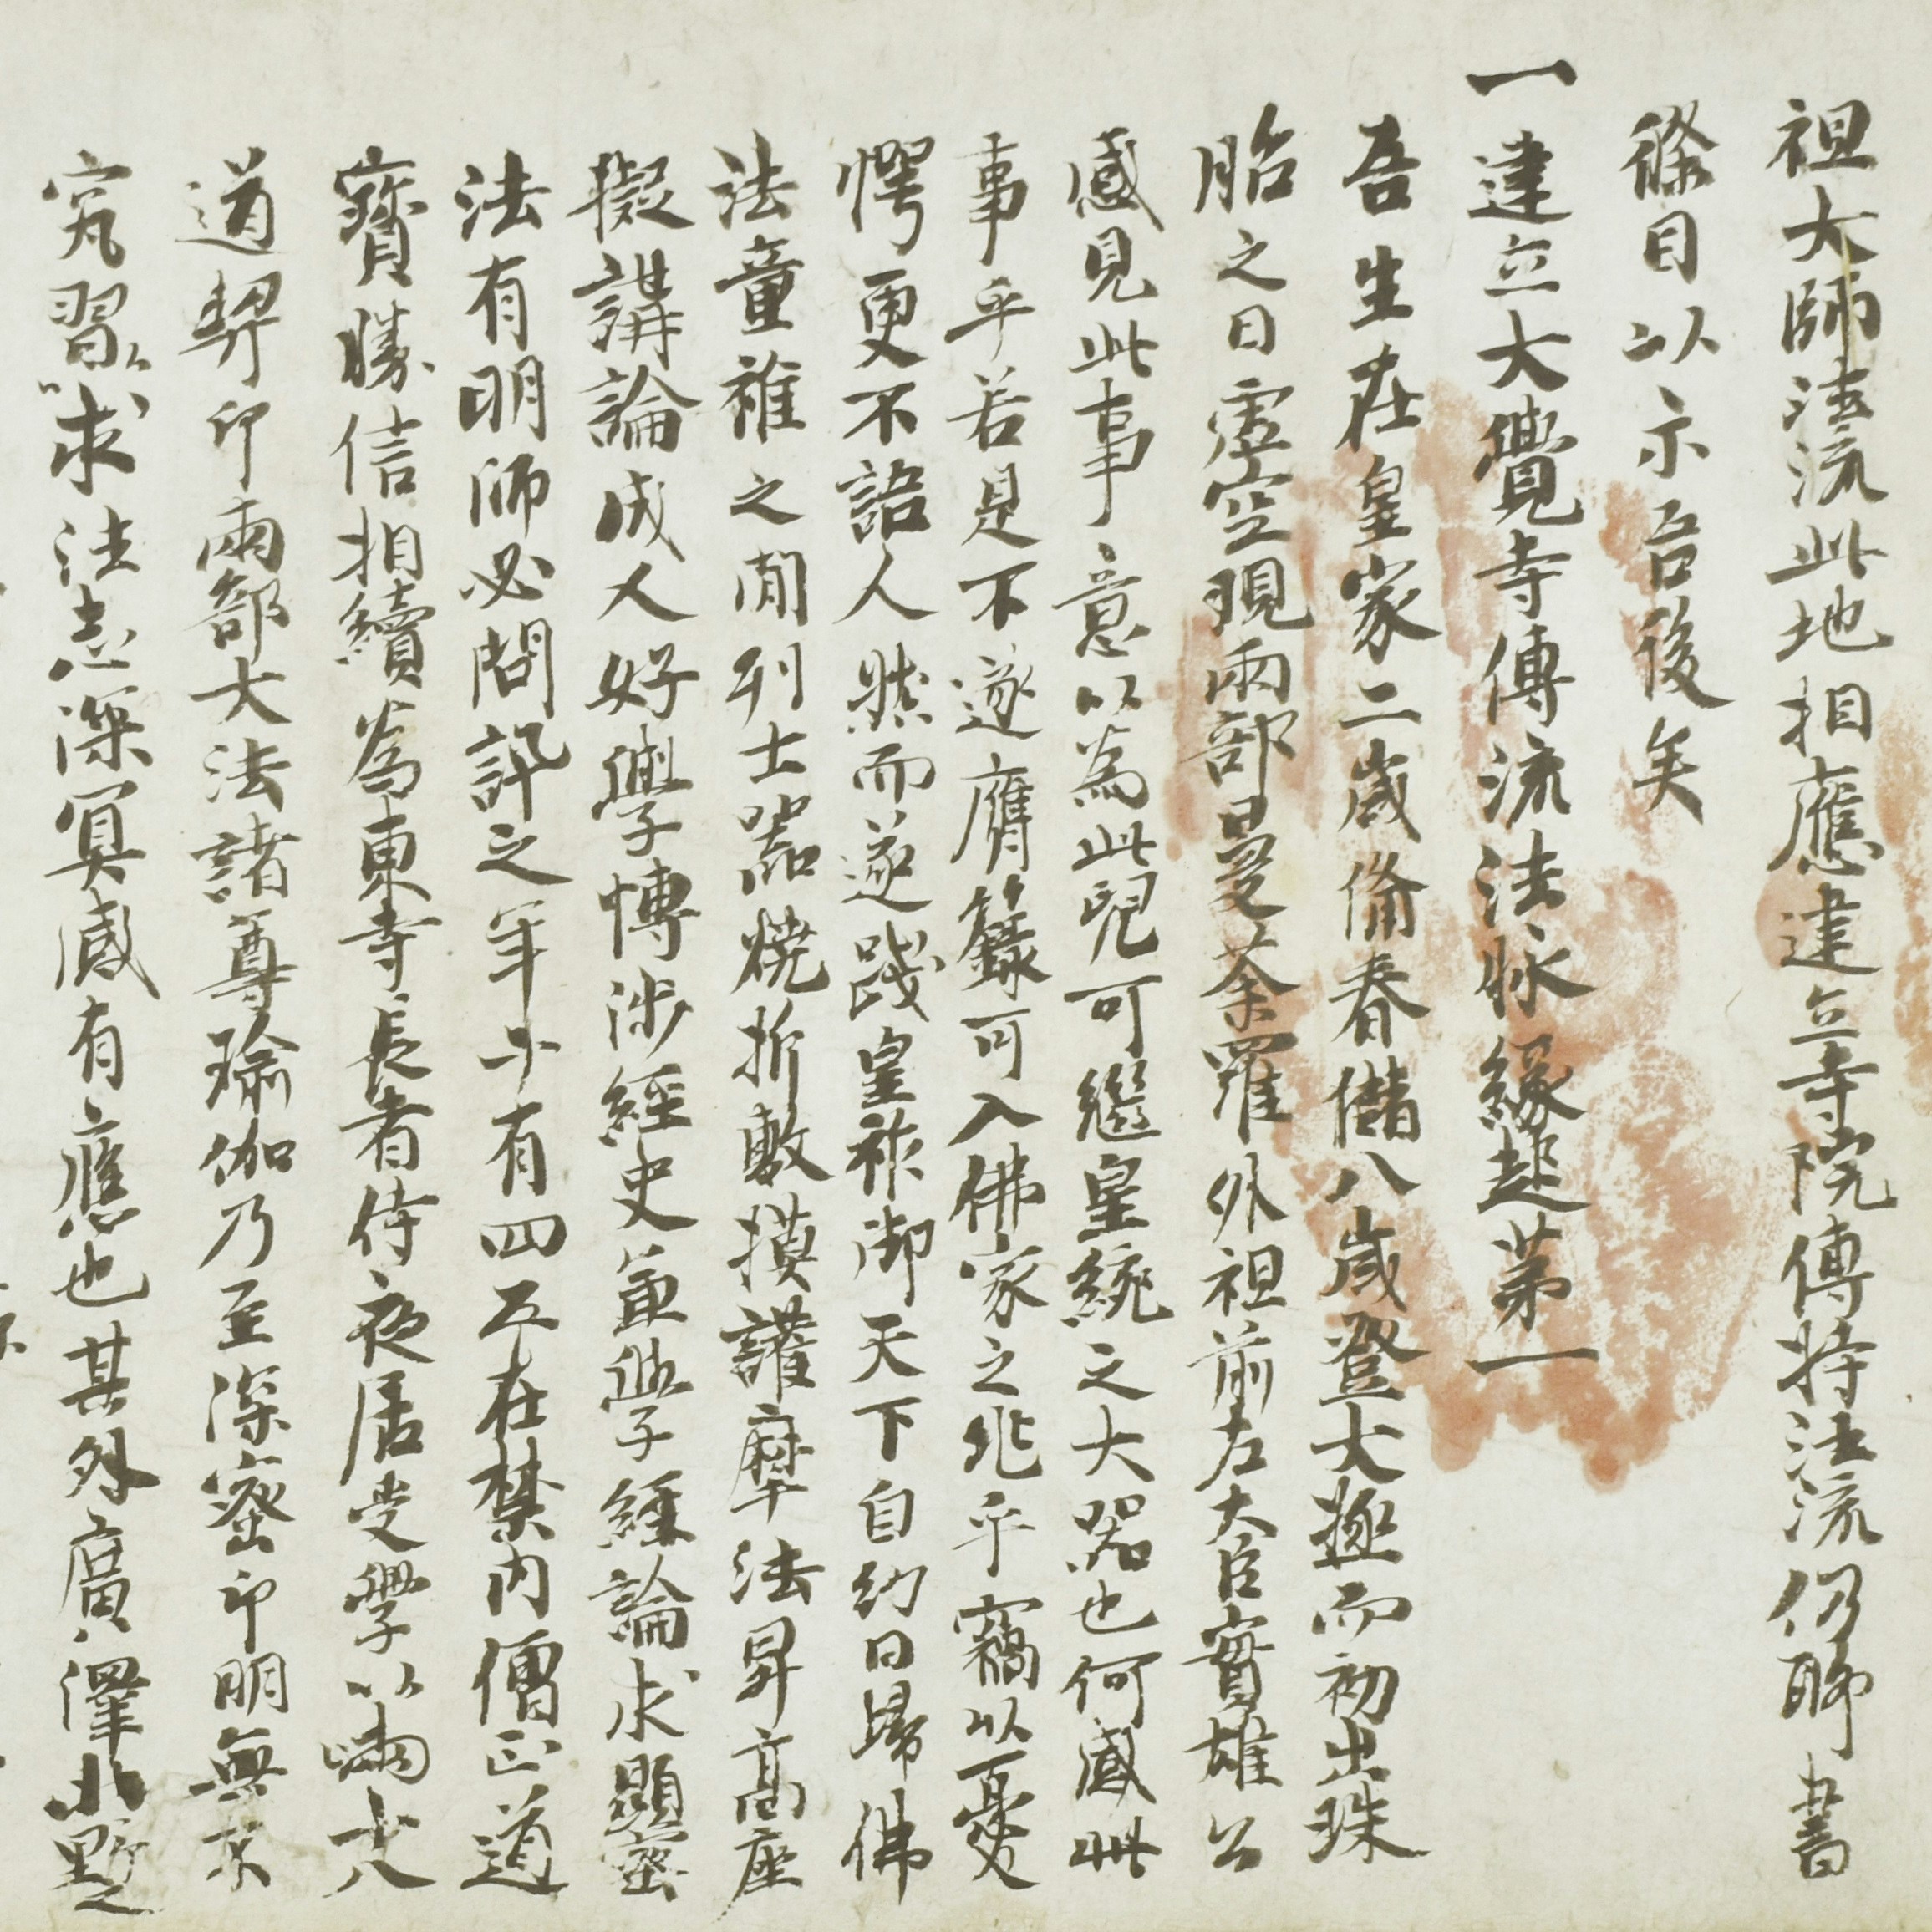 祖大師法流此地相應建立寺院傳持法流仍聊書
條目以示吾後矣
一建立大覺寺傳流法脉緣起第一
吾生在皇家二歲備春儲八歲登大極而初出珠
胎之日虛空現兩部曼荼羅外祖前左大臣實雄公
感見此事意以為此兒可繼皇統之大器也何感此
事乎若是不遂膺籙可入佛家之兆乎竊以憂
愕更不語人然而遂踐皇祚御天下自幼日歸佛
法童稚之間列士器燒折敷摸護摩法昇高座
擬講論成人好學博涉經史兼學經論求顯密
法有明師必問訊之年十有四五在禁內僧正道
寶勝信相續為東寺長者侍夜居受學以兩十八
道契印兩部大法諸尊瑜伽乃至深密印明無不
究習求法志深冥感有應也其外廣澤小野之